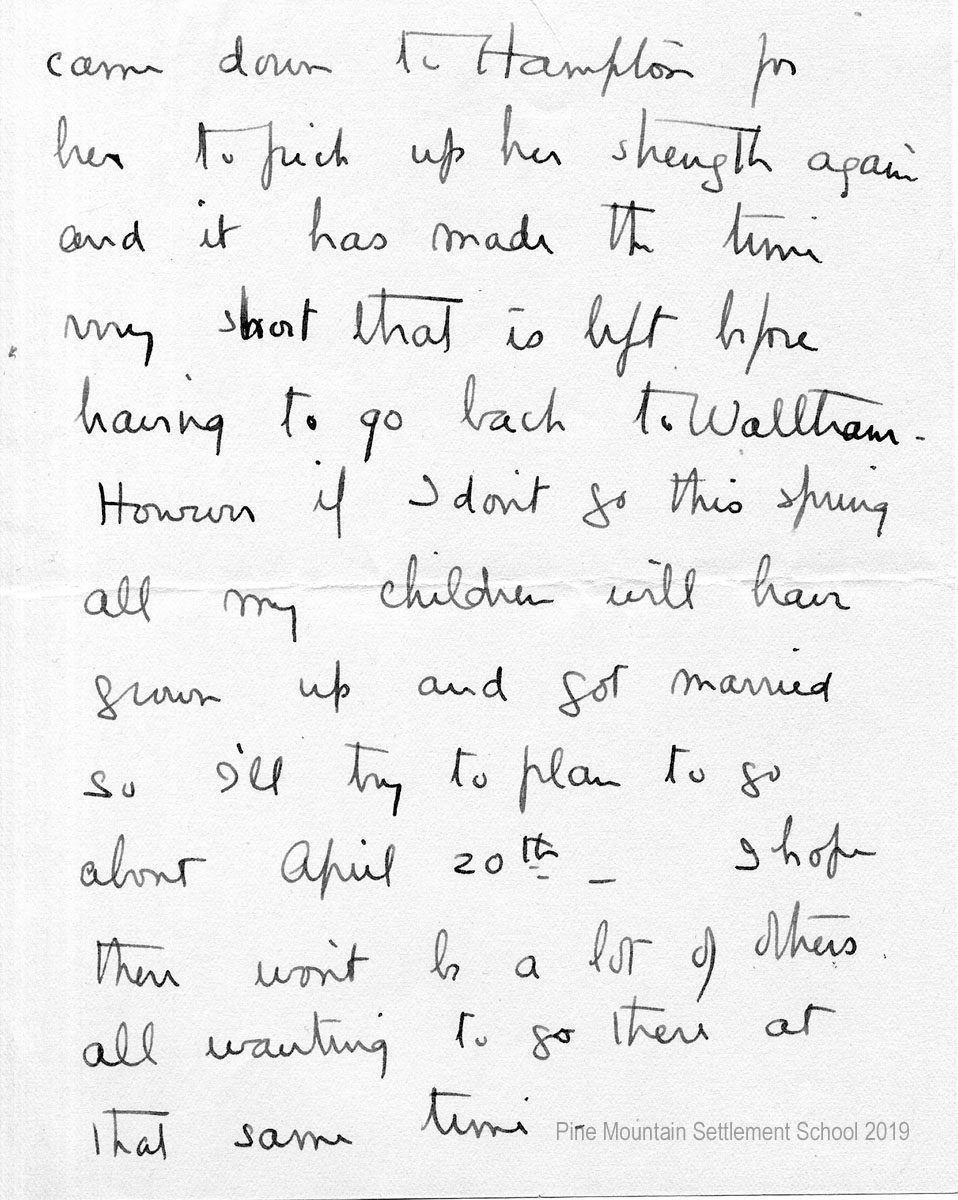 came down to Hampton for
her to pick up her strength again
and it has made the time
very short that is left before
having to go back to Waltham -
However if I don't go this spring
all my children will have
grown up and got married
so I'll try to plan to go
about April 20th - I hope
there won't be a lot of others
all wanting to go there at
that same time -
Pine Mountain Settlement School 2019